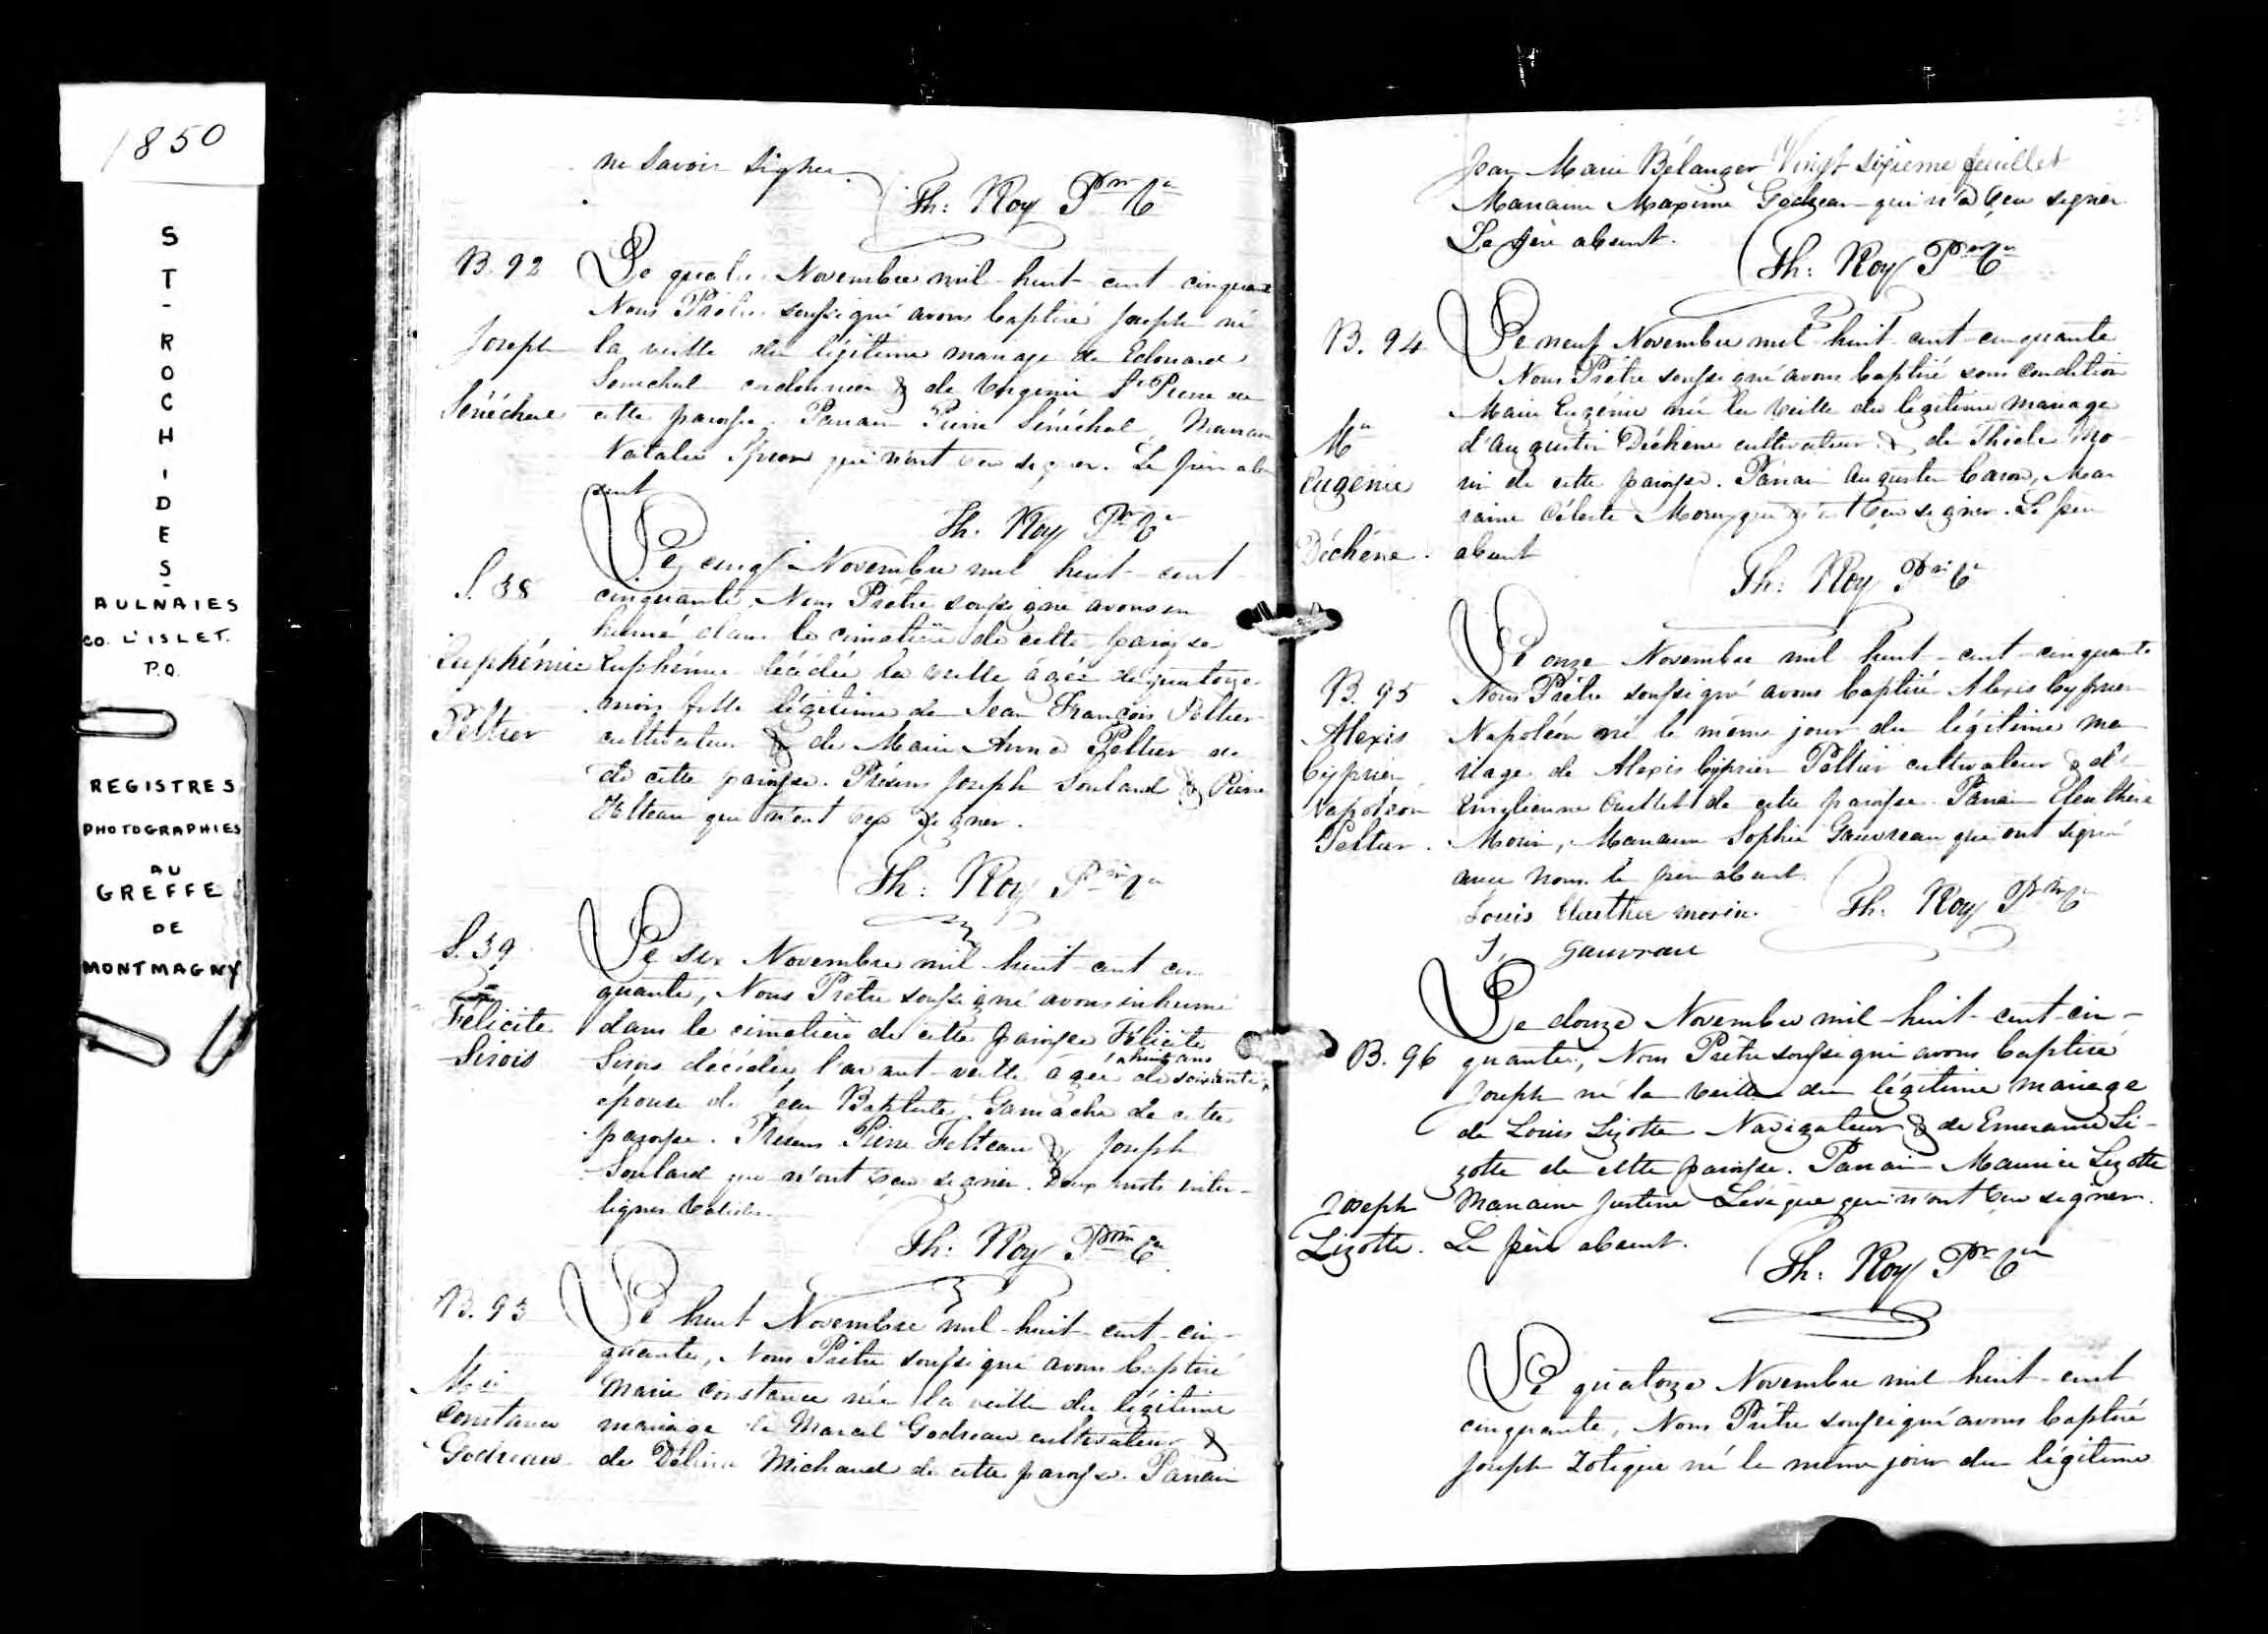 1850
ST-ROCH-DES-
AULNAIES
CO. L'ISLET.
P.Q.
REGISTRES
PHOTOGRAPHIES
AU
GREFFE
DE
MONTMAGNY
ne savoir signer.
Th: Roy Ptre
B. 92
Joseph
Sénéchal
Le quatre Novembre mil-huit-cent-cinquante
Nous Prêtre soussigné avons baptisé Joseph né
la veille du légitime mariage de Edouard
Senechal cordonnier & de Virginie St Pierre de
cette paroisse. Parrain Pierre Sénéchal, Marraine
Natalie qui n'ont seu signer. Le père ab
sent
Th. Roy Ptre
S. 38
Euphémie
Peltier
Le cinq Novembre mil huit-cent-
cinquante, Nous Prêtre soussigné avons in
humé dans le cimetière de cette paroisse
Euphémie décédée la veille âgée de quatorze
mois fille légitime de Jean François Peltier
cultivateur & de Marie Anne Peltier de
de cette paroisse. Présens Joseph Soulard & Pierre
Felteau qui n'ont seu signer.
Th: Roy Ptre
S. 39
Félicité
Sirois
Le six Novembre mil-huit-cent cin
quante, Nous Prêtre soussigné avons inhumé
dans le cimetière de cette paroisse Félicité
Sirois décédée l'avant-veille âgée de soixante
huit ans
épouse de Jean Baptiste Gamache de cette
paroisse. Présens Pierre Felteau & Joseph
Soulard qui n'ont seu signer. Deux mots inter-
lignes valides.
Th: Roy Ptre
B. 93
Mie
Constance
Godreau
Le huit Novembre mil-huit-cent-cin-
quante, Nous Prêtre soussigné avons baptisé
Marie Constance née la veille du légitime
mariage de Marcel Godreau cultivateur &
de Délina Michaud de cette paroisse. Parrain
Jean Marie Bélanger Vingt sixième feuillet
Marraine Maxime Godreau qui n'a seu signer
Le père absent.
Th: Roy Ptre
B. 94
Me
Eugénie
Déchêne.
Le neuf Novembre mil-huit-cent-cinquante
Nous Prêtre soussigné avons baptisé sous condition
Marie Eugénie née la veille du légitime mariage
d'Augustin Déchêne cultivateur & de Thècle Mo-
rin de cette paroisse. Parrain Augustin Caron, Mar
raine Céleste Morin qui n'ont seu signer. Le père
absent
Th: Roy Ptre
B. 95
Alexis
Cyprien
Napoléon
Peltier.
Le onze Novembre mil huit-cent-cinquante
Nous Prêtre soussigné avons baptisé Alexis Cyprien
Napoléon né le même jour du légitime ma
riage de Alexis Cyprien Peltier cultivateur & d'
Emilienne Ouellet de cette paroisse. Parrain Eleuthère
Morin, Marraine Sophie Gauvreau qui ont signé
avec nous. le père absent.
Louis Eleuthere morin. Th: Roy Ptre
S. gauvreau
B. 96
Joseph
Lizotte.
Le douze Novembre mil-huit-cent-cin-
quante, Nous Prêtre soussigné avons baptisé
Joseph né la veille du légitime mariage
de Louis Lizotte Navigateur & de Emerance Li-
zotte de cette paroisse. Parrain Maurice Lizotte
Marraine Justine Lévêque qui n'ont seu signer.
Le père absent.
Th: Roy Ptre
Le quatorze Novembre mil huit-cent
cinquante, Nous Prêtre soussigné avons baptisé
Joseph Zotique né le même jour du légitime